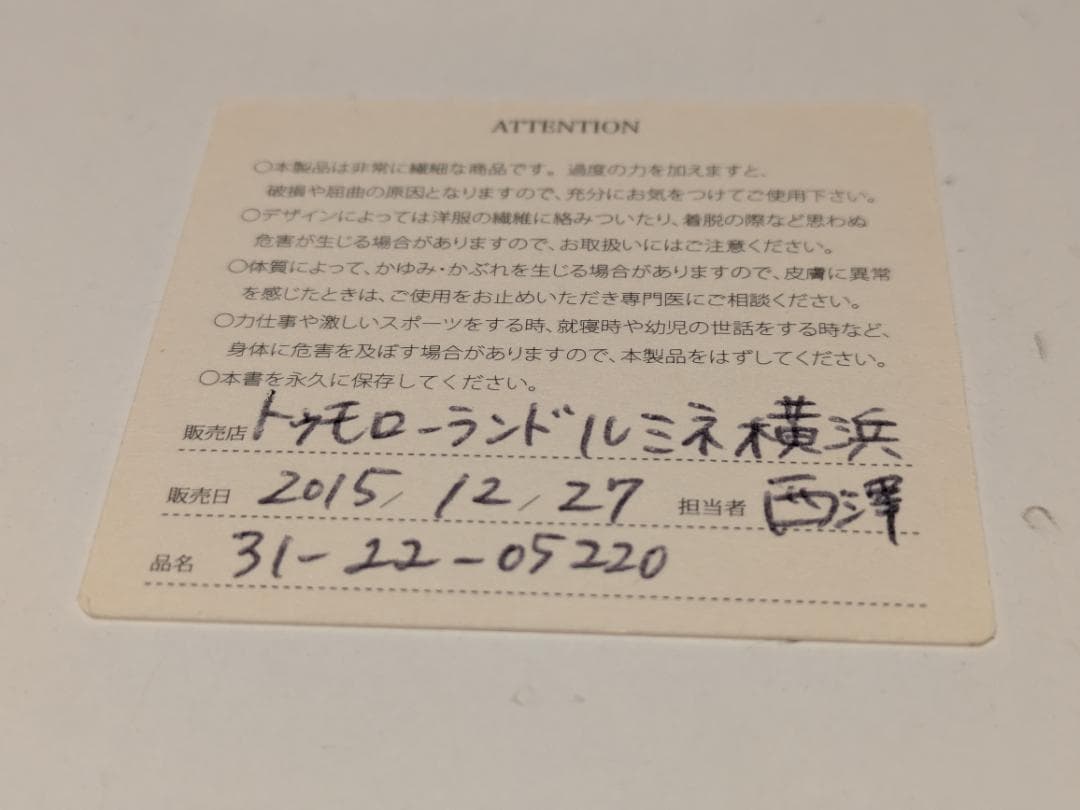 ATTENTION
○本製品は非常に繊細な商品です。過度の力を加えますと、
破損や屈曲の原因となりますので、充分にお気をつけてご使用下さい。
○デザインによっては洋服の繊維に絡みついたり、着脱の際など思わぬ
危害が生じる場合がありますので、お取扱いにはご注意ください。
○体質によって、かゆみ・かぶれを生じる場合がありますので、皮膚に異常
を感じたときは、ご使用をお止めいただき専門医にご相談ください。
○力仕事や激しいスポーツをする時、就寝時や幼児の世話をする時など、
身体に危害を及ぼす場合がありますので、本製品をはずしてください。
○本書を永久に保存してください。
販売店 トゥモローランド ルミネ横浜
販売日 2015/12/27 担当者 西澤
品名 31-22-05220